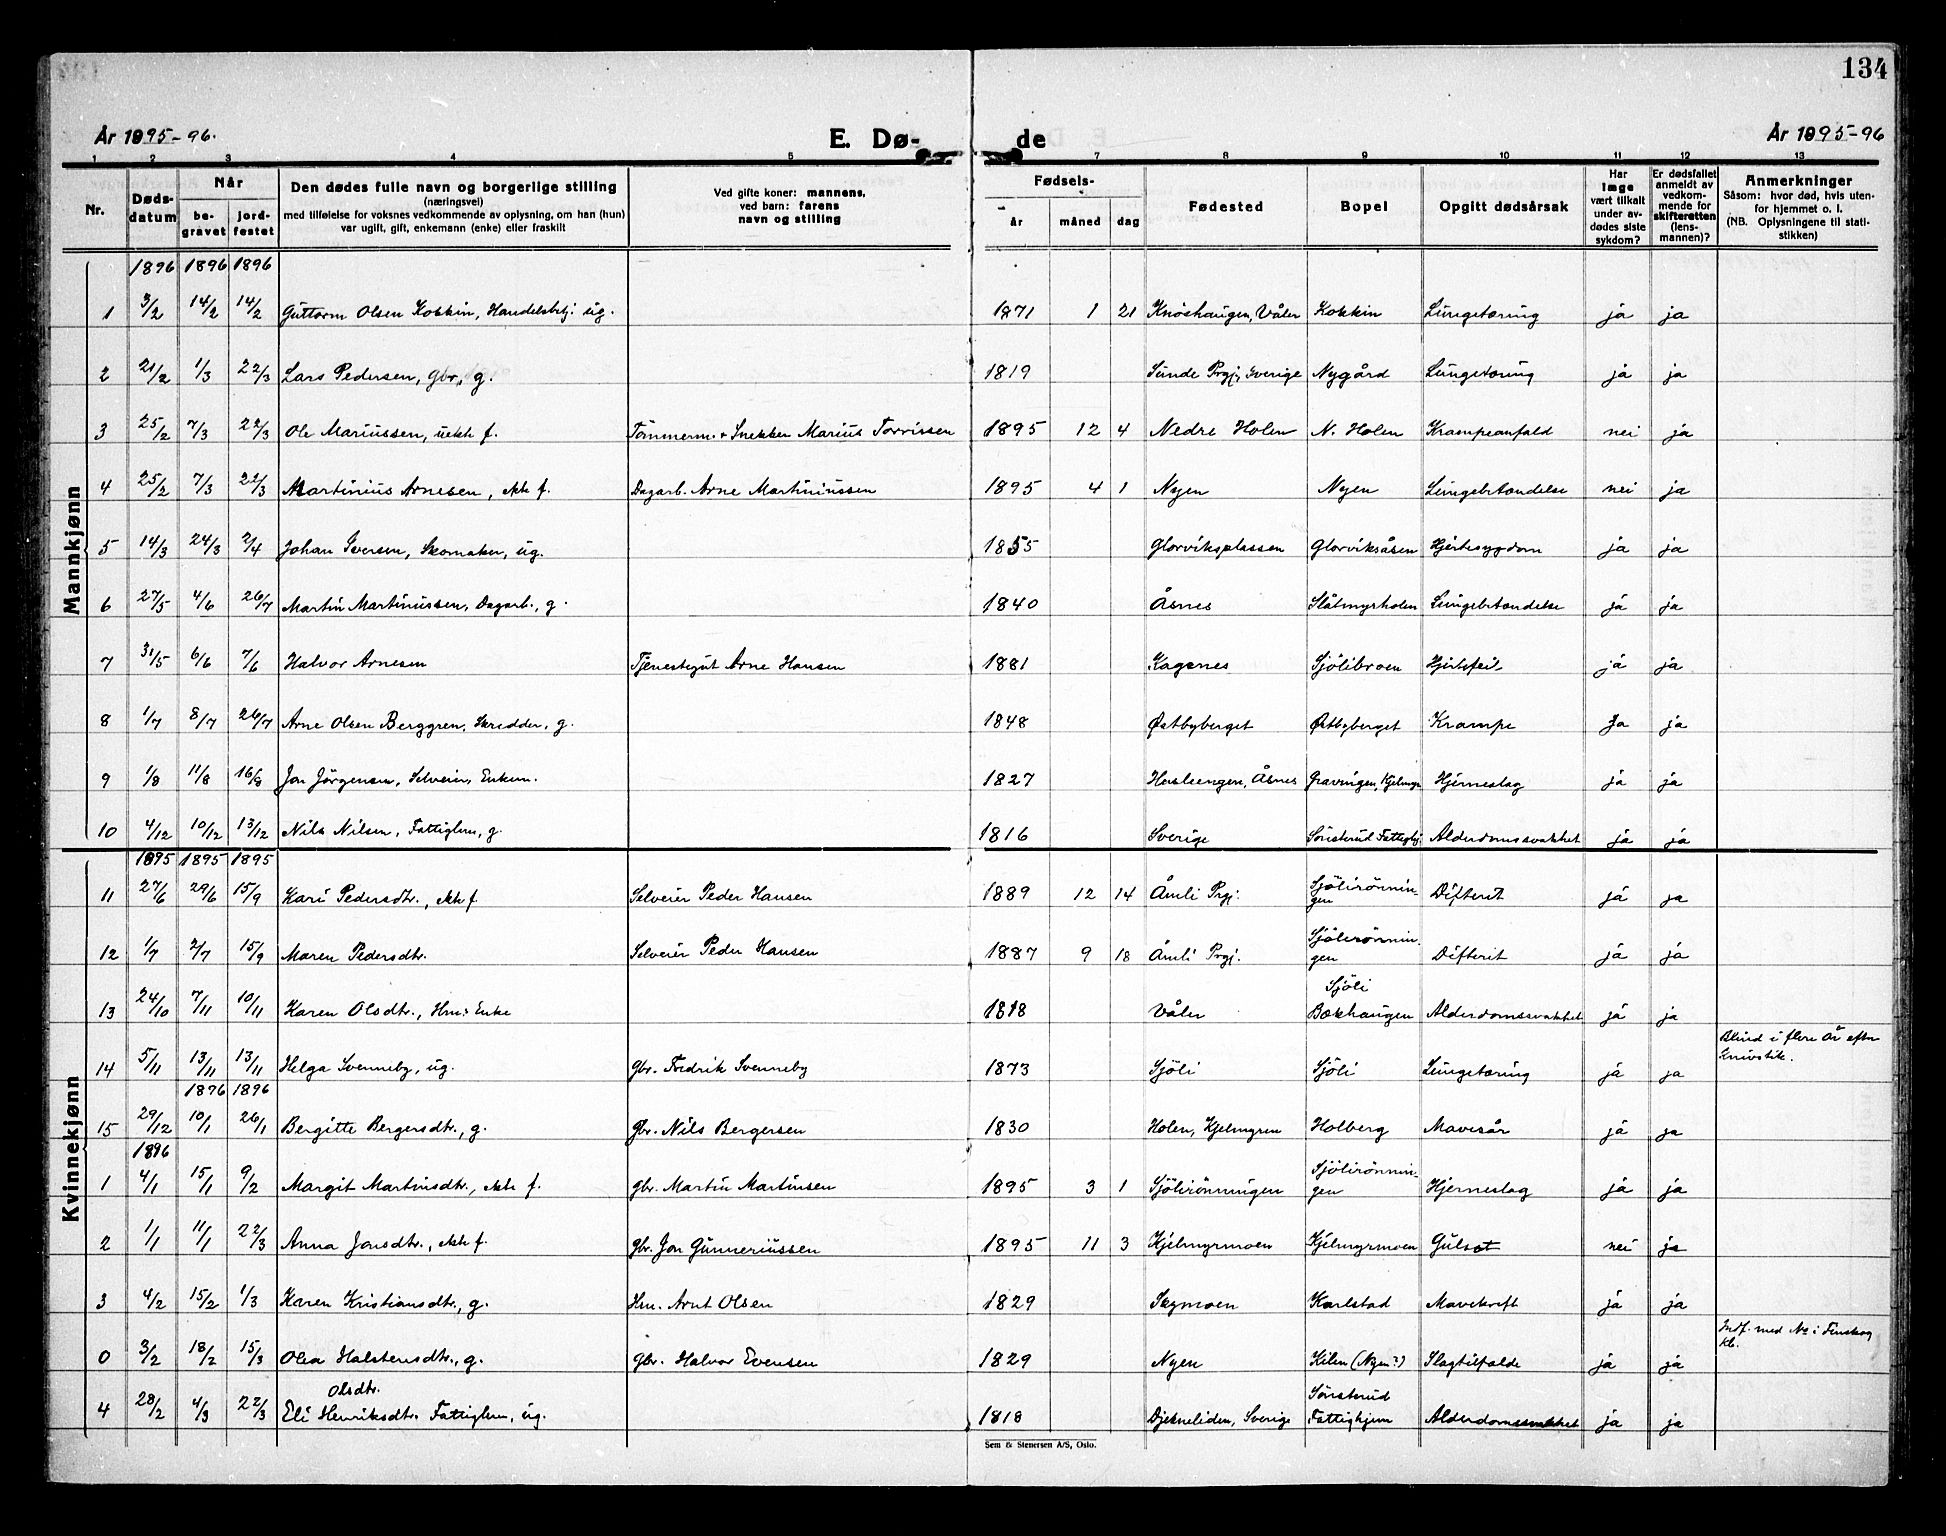 134
År 1895-96.
E. Dø-
de
År 1895-96
1 2 3 4 5 7 8 9 10 11 12 13
Nr.
Døds-
datum
Når
be-
gravet
jord-
festet
Den dødes fulle navn og borgerlige stilling
(næringsvei)
med tilføielse for voksnes vedkommende av oplysning, om han (hun)
var ugift, gift, enkemann (enke) eller fraskilt
Ved gifte koner: mannens,
ved barn: farens
navn og stilling
Fødsels-
år
måned
dag
Fødested
Bopel
Opgitt dødsårsak
Har
læge
vært tilkalt
under av-
dødes siste
sykdom?
Er dødsfallet
anmeldt av
vedkom-
mende for
skifteretten
(lens-
mannen)?
Anmerkninger
Såsom: hvor død, hvis uten-
for hjemmet o. l.
(NB. Oplysningene til stati-
stikken)
Mannkjønn
1896 1896 1896
1 3/2 14/2 14/2 Guttorm Olsen Kokkin, Handelsbetj. ug. 1871 1 21 Knöshaugen, Våler Kokkin Lungetæring ja ja
2 21/2 1/3 22/3 Lars Pedersen, gbr., g. 1819 Sunde Prgj., Sverige Nygård Lungetæring ja ja
3 25/2 7/3 22/3 Ole Mariussen, uekt f. Tömmerm. & Snekker Marius Torrissen 1895 12 4 Nedre Holen N. Holen Krampeanfald nei ja
4 25/2 7/3 22/3 Martinius Arnesen, ekte f. Dagarb. Arne Martiniussen 1895 4 1 Nyen Nyen Lungebetændelse nei ja
5 14/3 24/3 2/4 Johan Iversen, Skomaker, ug. 1855 Glorviksplassen Glorviksåsen Hjertesygdom ja ja
6 27/5 4/6 26/7 Martin Martinussen, Dagarb., g. 1840 Åsnes Slåtmyrholen Lungebetændelse ja ja
7 31/5 6/6 7/6 Halvor Arnesen Tjenestegut Arne Hansen 1881 Kagsnes Sjölibroen Hjertefeil ja ja
8 1/7 8/7 26/7 Arne Olsen Berggren, Skredder, g. 1848 Østbyberget Østbyberget Krampe Ja ja
9 1/8 11/8 16/8 Jon Jörgensen, Selveier, Enkem. 1827 Åsnes Gravingen, Kjelmyr Hjerneslag ja ja
10 4/12 10/12 13/12 Nils Nilsen, Fattiglem, g. 1816 Sverige Sönsterud Fattighj. Alderdomssvakhet ja ja
Kvinnekjønn
1895 1895 1895
11 27/6 29/6 15/9 Kari Pedersdtr., ekte f. Selveier Peder Hansen 1889 12 14 Åmli Prgj. Sjölirönnin-
gen Difterit ja ja
12 1/7 2/7 15/9 Maren Pedersdtr. Selveier Peder Hansen 1887 9 18 Åmli Prgj. Sjölirönnin-
gen Difterit ja ja
13 24/10 7/11 10/11 Karen Olsdtr., Hm. Enke 1818 Våler Sjöli
Bækhaugen Alderdomssvakhet ja ja
14 5/11 13/11 13/11 Helga Svenneby, ug. gbr. Fredrik Svenneby 1873 Sjöli Sjöli Lungetæring ja ja Blind i flere År efter
Knivstik.
1896 1896
15 29/12 10/1 26/1 Bergitte Bergersdtr., g. gbr. Nils Bergersen 1830 Holen, Kjelmyren Holberg Mavesår ja ja
1896
1 4/1 15/1 9/2 Margit Martinsdtr., ekte f. gbr. Martin Martinsen 1895 3 1 Sjölirönningen Sjölirönnin-
gen Hjerneslag ja ja
2 1/1 11/1 22/3 Anna Jonsdtr., ekte f. gbr. Jon Gunneriussen 1895 11 3 Kjelmyrmoen Kjelmyrmoen Gulsot nei ja
3 4/2 15/2 1/3 Karen Kristiansdtr., g. Hm. Arnt Olsen 1829 Skymoen Karlstad Mavekreft ja ja
0 3/2 18/2 15/3 Olea Halstensdtr., g. gbr. Halvor Evensen 1829 Nyen Kilen (Nyen?) Slagtilfælde ja ja Indf. med No i Finskog
Kb.
4 28/2 4/3 22/3 Olsdtr.
Eli Henriksdtr. Fattiglem, ug. 1818 Djekneliden, Sverige Sönsterud
Fattighjem Alderdomssvakhet ja ja
Sem & Stenersen A/S, Oslo.